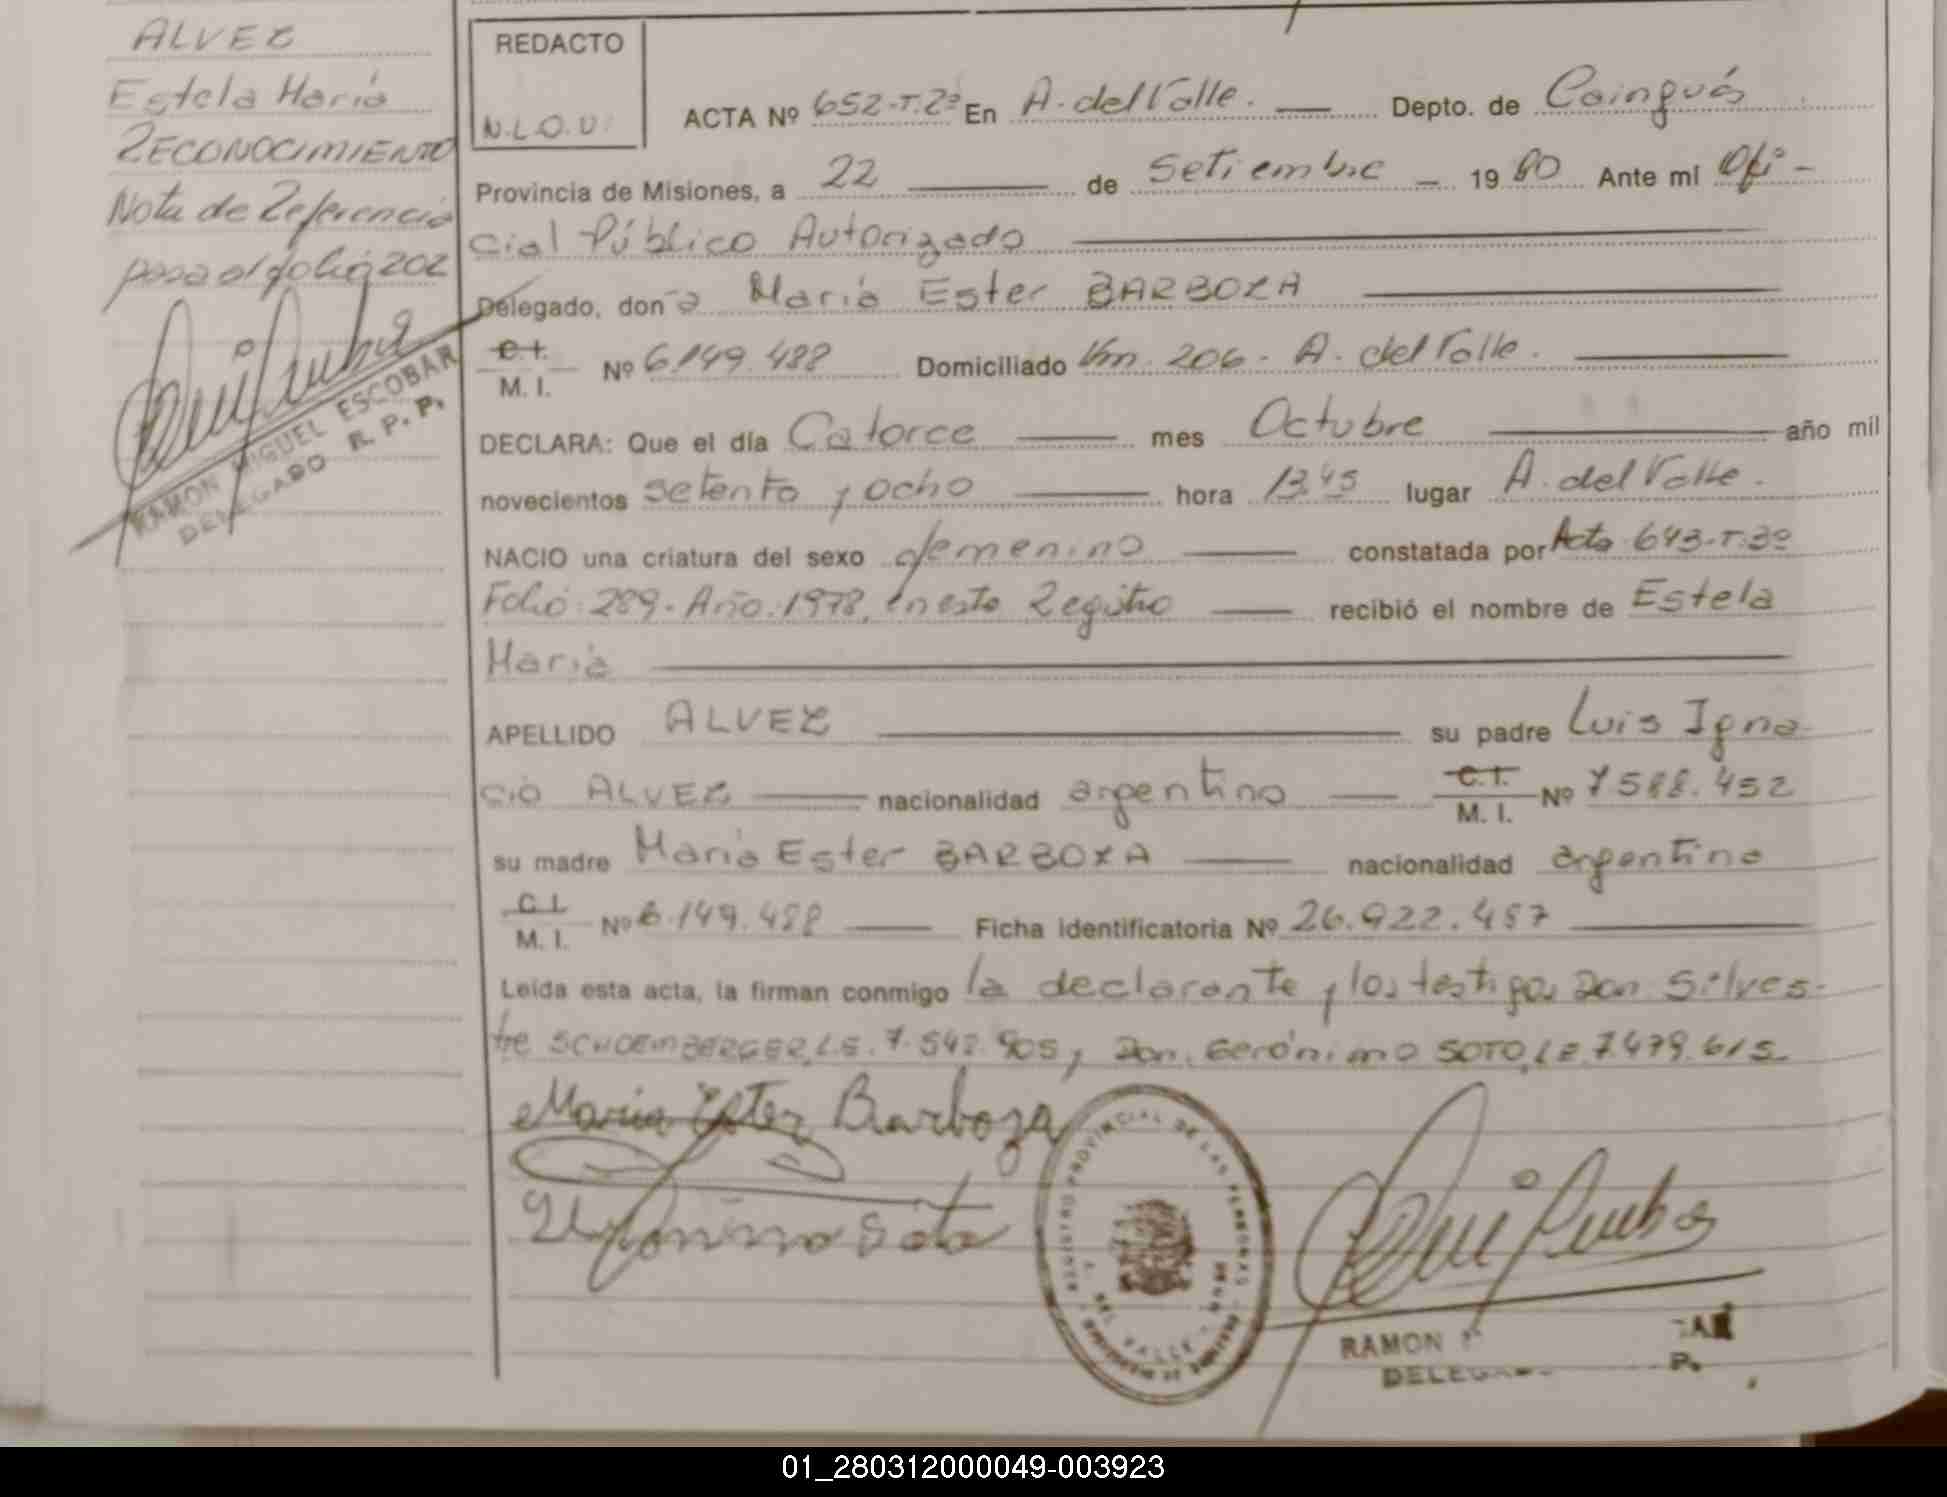 ALVEZ
Estela María
RECONOCIMIENTO
Nota de Referencia
pasa al folio 202
RAMON MIGUEL ESCOBAR
DELEGADO R. P. P.
REDACTO
N.L.O.V.
ACTA Nº 652-T.2º En A. del Valle. Depto. de Cainguás
Provincia de Misiones, a 22 de Setiembre 19 80 Ante mí Ofi-
cial Público Autorizado
Delegado, don a María Ester BARBOZA
C.I.
M. I. Nº 6.149.488 Domiciliado Km. 206 - A. del Valle.
DECLARA: Que el día Catorce mes Octubre año mil
novecientos setenta y ocho hora 13,45 lugar A. del Valle.
NACIO una criatura del sexo femenino constatada por Acta 643-T.3º
Folio: 289. Año: 1978, en este Registro recibió el nombre de Estela
María
APELLIDO ALVEZ su padre Luis Igna
cio ALVEZ nacionalidad argentino C.I.
M. I. Nº 7.588.452
su madre María Ester BARBOZA nacionalidad argentina
C.I.
M. I. Nº 6.149.488 Ficha identificatoria Nº 26.922.487
Leída esta acta, la firman conmigo la declarante y los testigos Don Silves-
tre L.E. 7.542.905 y Don Gerónimo SOTO, L.E. 7.479.615.
Maria Ester Barboza
Soto
REGISTRO PROVINCIAL DE LAS PERSONAS
A. DEL VALLE
RAMON
DELEGADO P.
01_280312000049-003923